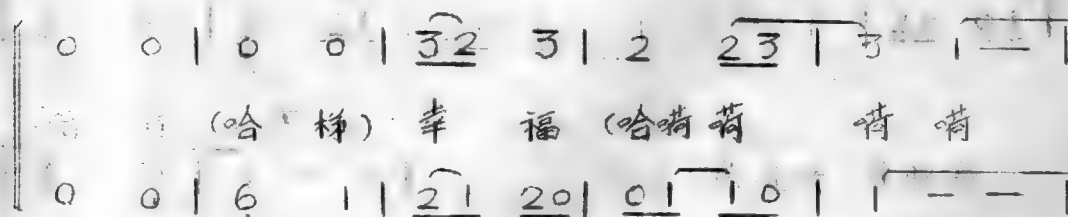 0 0 | 0 0 | 32 3 | 2 23 | 3 1 — |
(哈 梯) 幸 福 (哈嗬 嗬 嗬 嗬
0 0 | 6 1 | 21 20 | 01 10 | 1 — — |